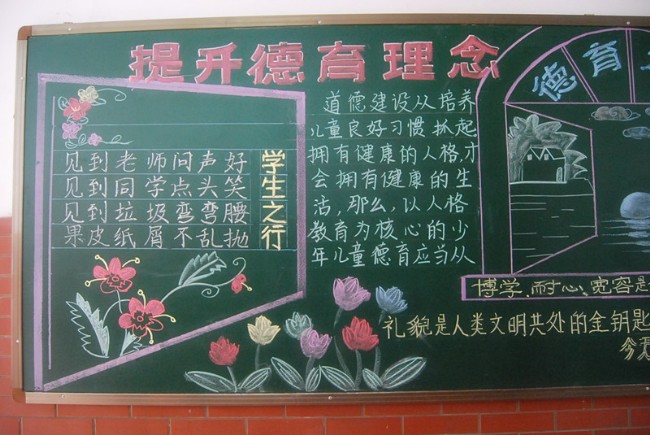 提升德育理念
德育
学生之行
见到老师问声好
见到同学点头笑
见到垃圾弯弯腰
果皮纸屑不乱抛
道德建设从培养
儿童良好习惯抓起
拥有健康的人格,才
会拥有健康的生
活,那么,以人格
教育为核心的少
年儿童德育应当从
博学、耐心、宽容是
礼貌是人类文明共处的金钥匙